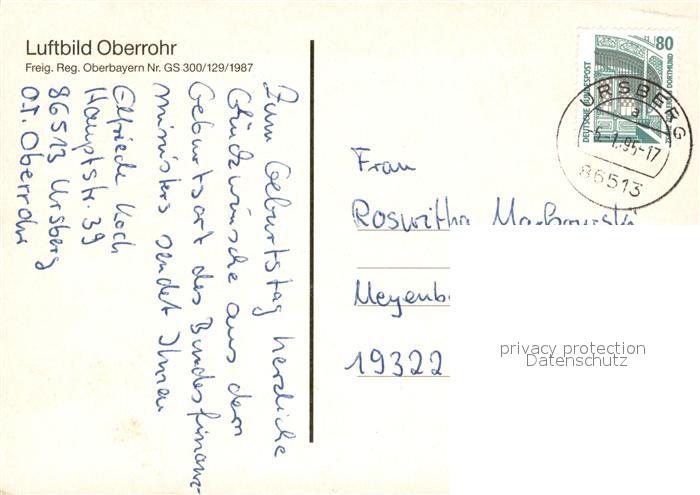 Luftbild Oberrohr
Freig. Reg. Oberbayern Nr. GS 300/129/1987
Zum Geburtstag herzliche
Glückwünsche aus dem
Geburtsort des Bundesfinanz-
ministers sendet Ihnen
Elfriede Koch
Hauptstr. 39
86513 Ursberg
O.T. Oberrohr
80
DEUTSCHE BUNDESPOST
DORTMUND
URSBERG
a
-5.-1.95-17
86513
Frau
Roswitha
Meyenb
19322
privacy protection
Datenschutz